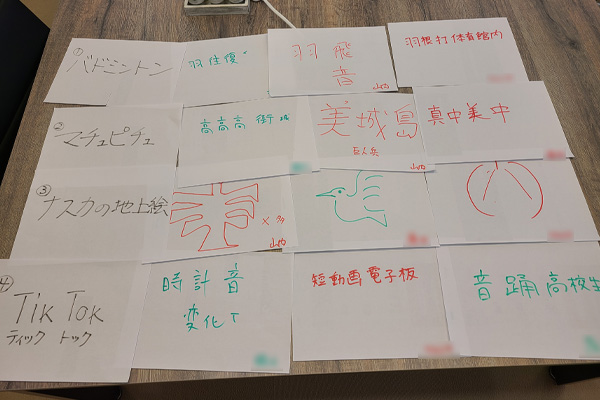 ① バドミントン
羽 往 復
羽 飛
音
山内
羽根打体育館内
② マチュピチュ
高高高 街
美城島
巨人兵
山内
真中美中
③ ナスカの地上絵
山内
④ TikTok
ティック トック
時計音
変化T
短動画電子板
音踊高校生